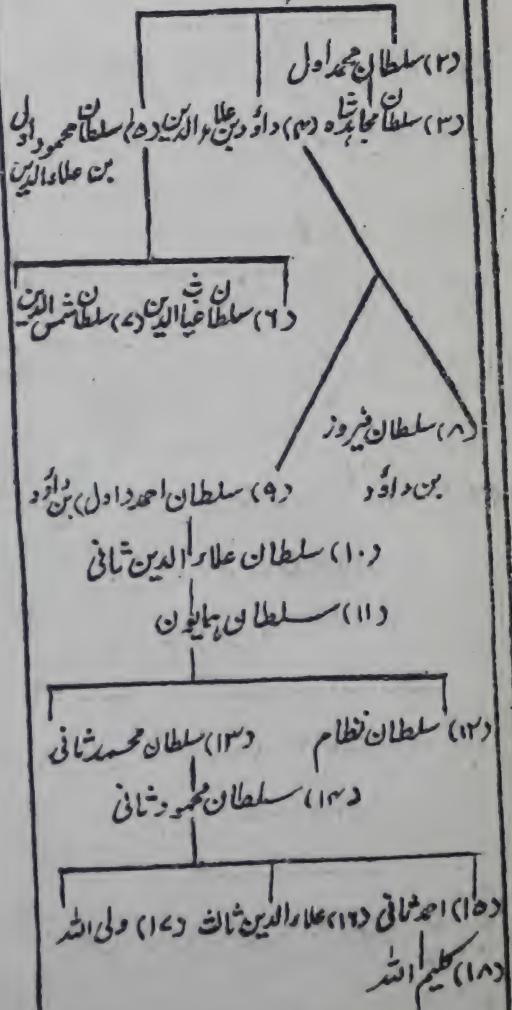 (۲) سلطان محمد اول
(۳) سلطان مجاہد شاہ (۴) داؤد بن علاء الدین (۵) سلطان محمود اول
بن علاء الدین
(۶) سلطان غیاث الدین (۷) سلطان شمس الدین
(۸) سلطان فیروز
بن داؤد (۹) سلطان احمد (اول) بن داؤد
(۱۰) سلطان علاء الدین ثانی
(۱۱) سلطان ہمایون
(۱۲) سلطان نظام (۱۳) سلطان محمد ثانی
(۱۴) سلطان محمود ثانی
(۱۵) احمد ثانی (۱۶) علاء الدین ثالث (۱۷) ولی اللہ
(۱۸) کلیم اللہ